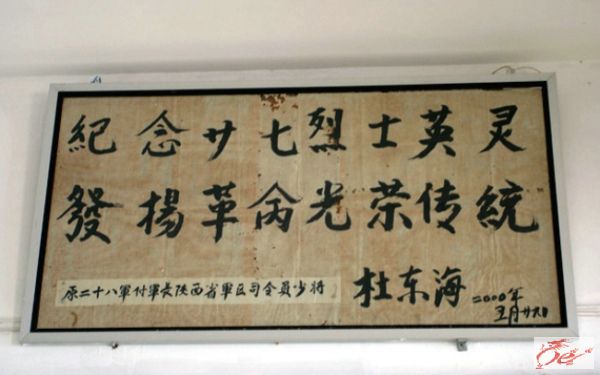 紀念廿七烈士英灵
發揚革命光荣传統
原二十八軍付軍長陕西省軍区司令員少将
杜东海
二〇〇〇年
五月廿六日